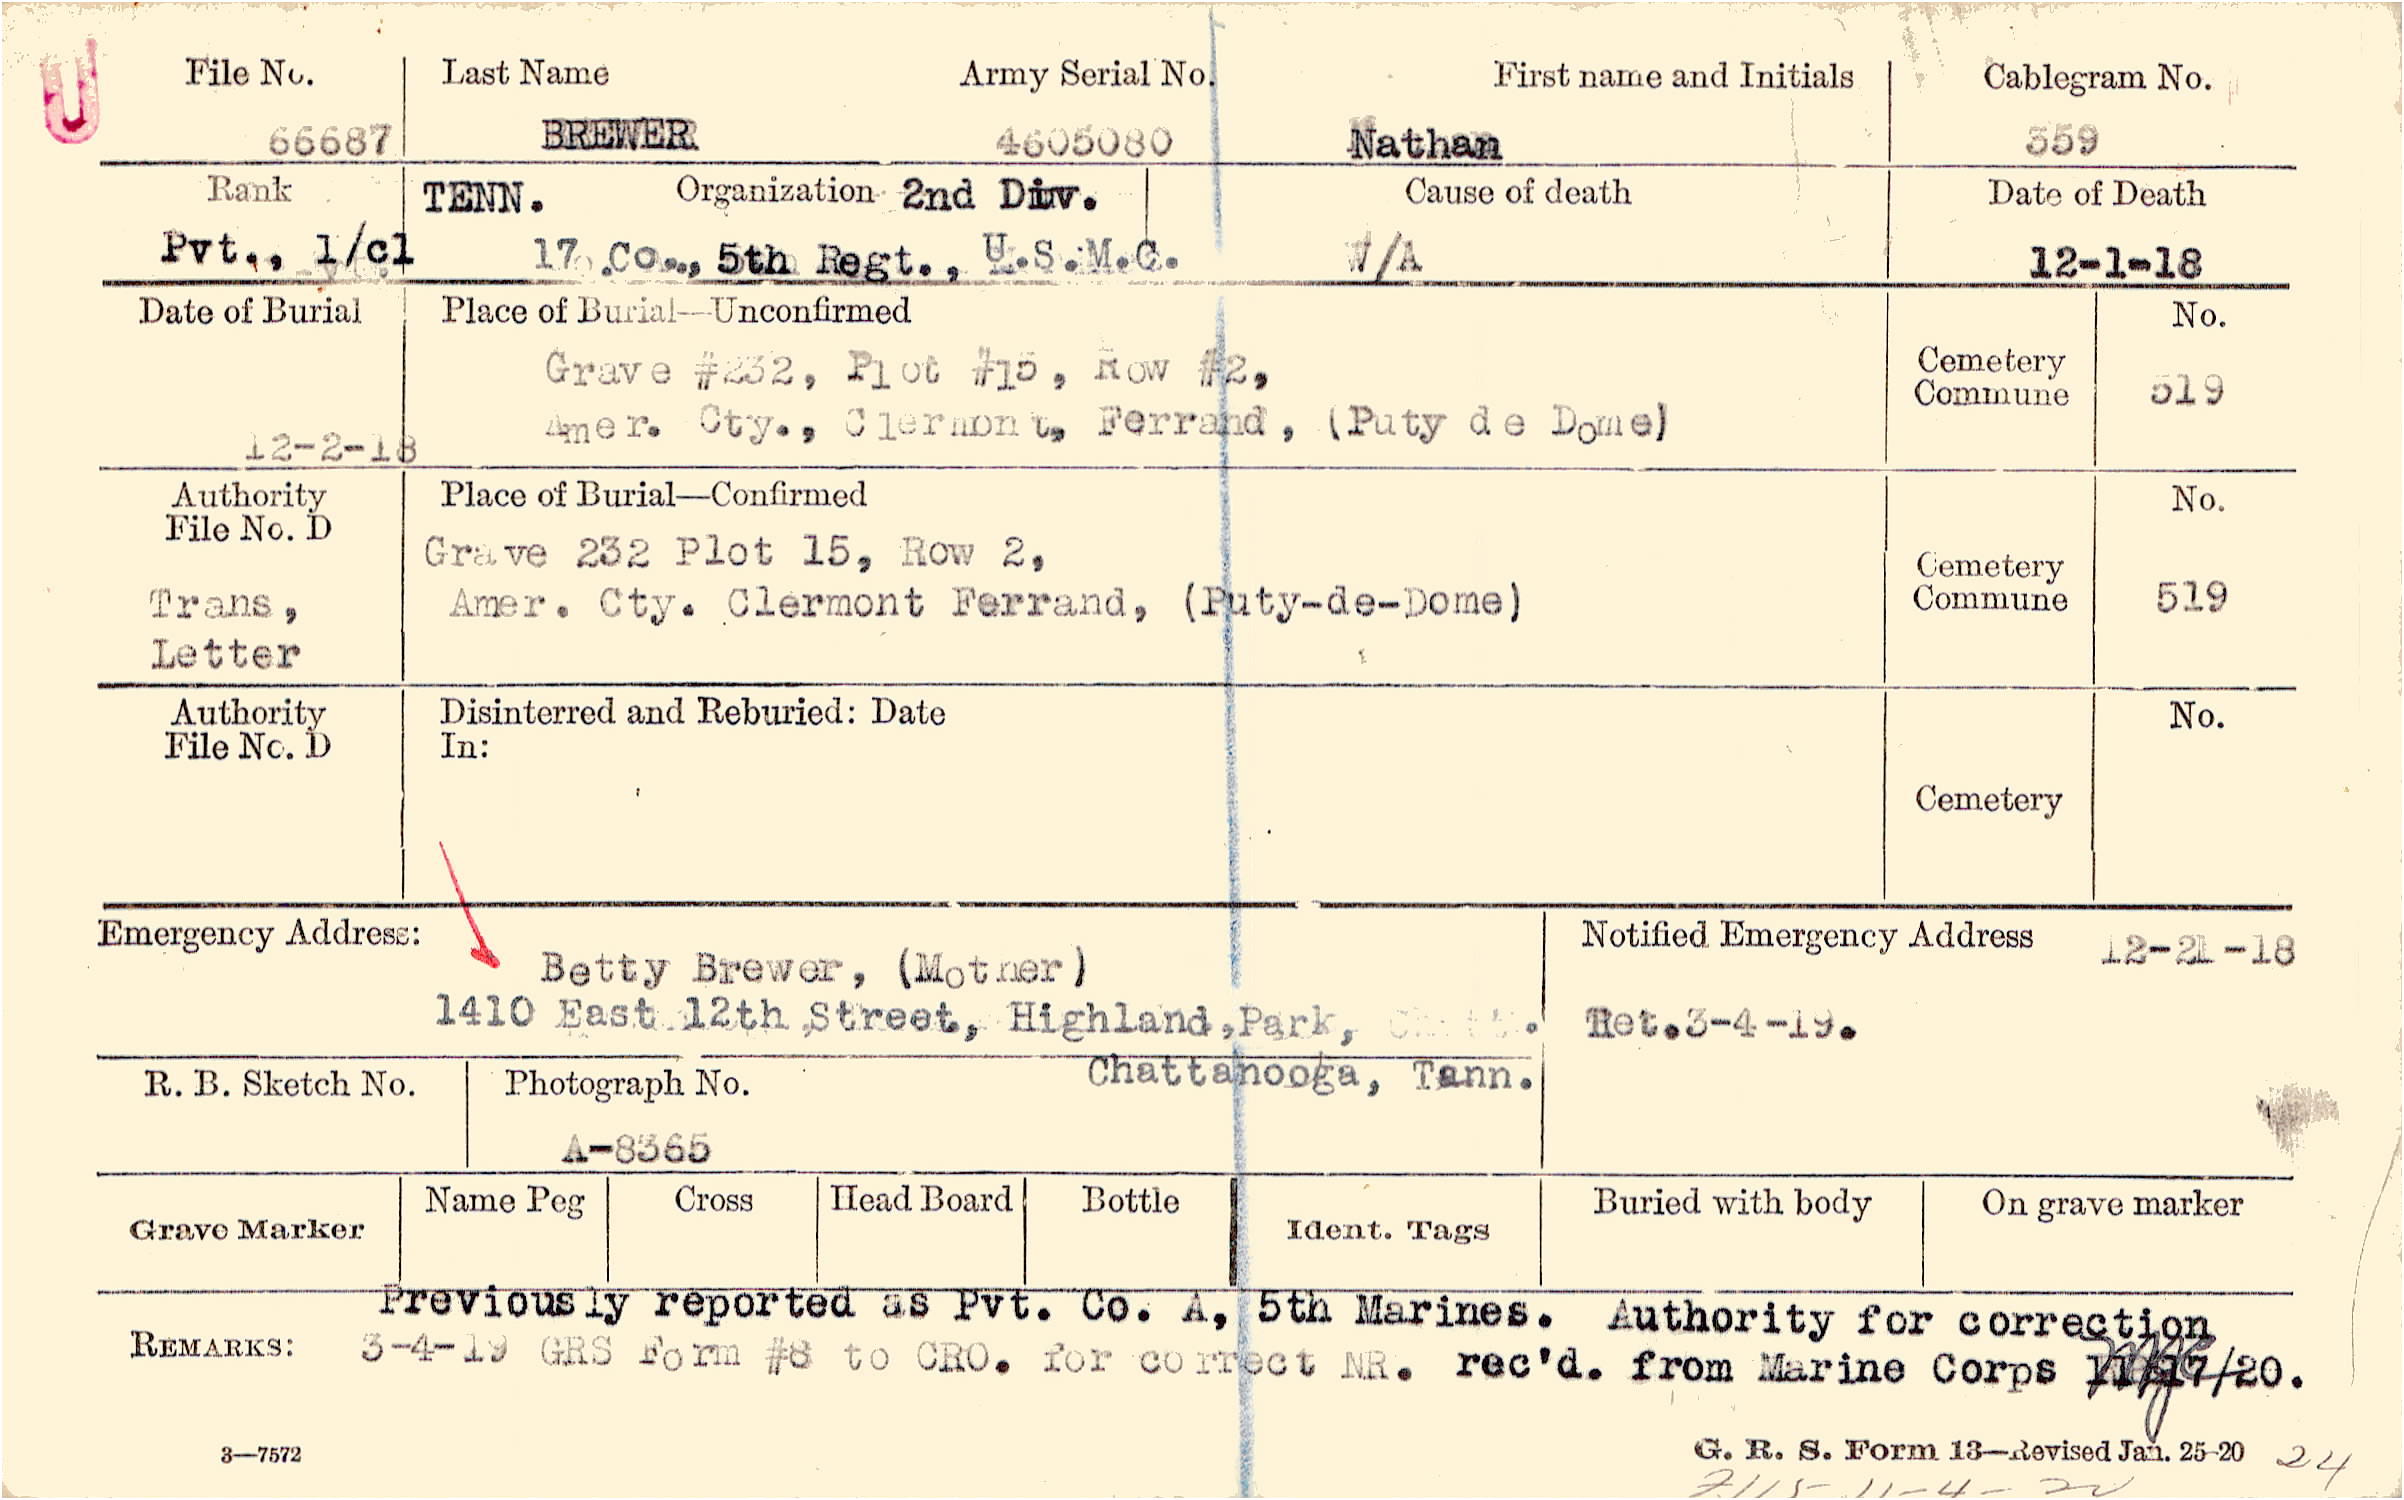 File No. Last Name Army Serial No. First name and Initials Cablegram No.
66687 BREWER 4605080 Nathan 359
Rank TENN. Organization 2nd Div. Cause of death Date of Death
Pvt., 1/cl 17 Co., 5th Regt., U.S.M.C. W/A 12-1-18
Date of Burial Place of Burial—Unconfirmed No.
Grave #232, Plot #15, Row #2,
Cemetery
Commune 519
Amer. Cty., Clermont, Ferrand, (Puty de Dome)
12-2-18
Authority Place of Burial—Confirmed No.
File No. D
Grave 232 Plot 15, Row 2,
Cemetery
Commune 519
Trans, Amer. Cty. Clermont Ferrand, (Puty-de-Dome)
Letter
Authority Disinterred and Reburied: Date No.
File No. D In:
Cemetery
Emergency Address: Notified Emergency Address 12-21-18
Betty Brewer, (Mother)
1410 East 12th Street, Highland, Park, Ret. 3-4-19.
Chattanooga, Tenn.
R. B. Sketch No. Photograph No.
A-8365
Grave Marker Name Peg Cross Head Board Bottle Ident. Tags Buried with body On grave marker
Previously reported as Pvt. Co. A, 5th Marines. Authority for correction
REMARKS: 3-4-19 GRS Form #8 to CRO. for correct NR. rec'd. from Marine Corps 11/17/20.
3—7572 G. R. S. Form 13—Revised Jan. 25-20 24